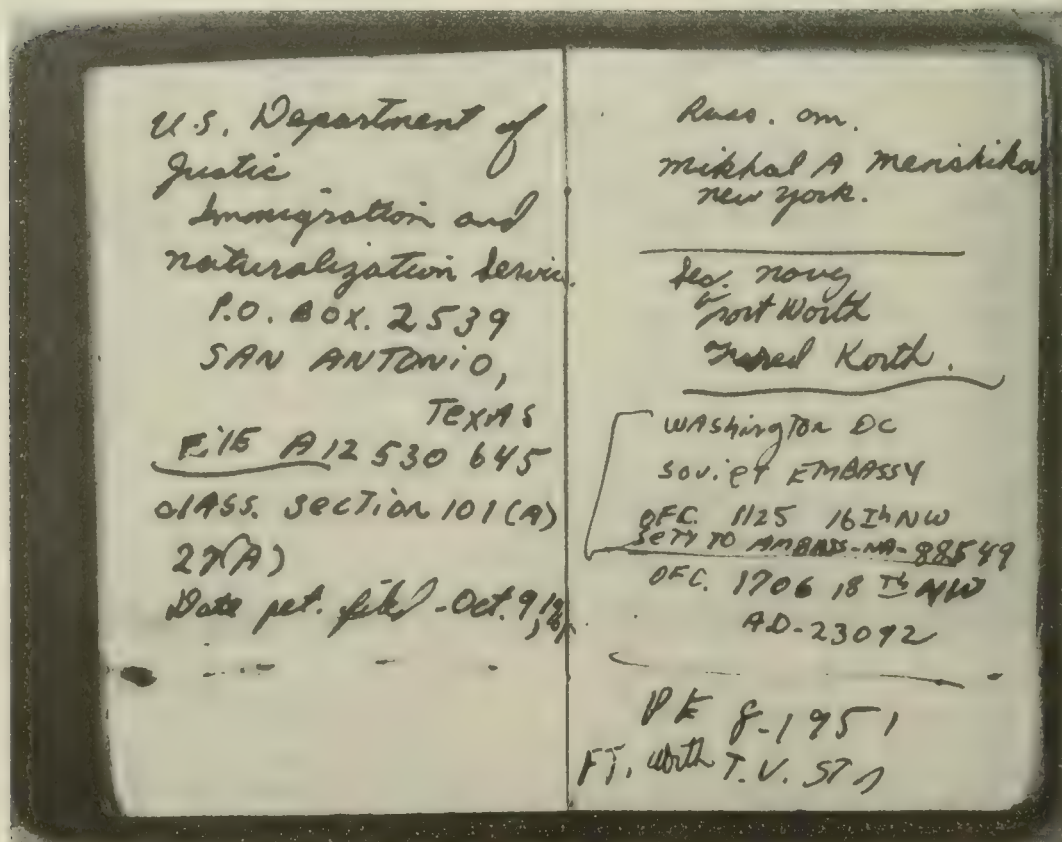 U.S. Department of
Justic
Immigration and
naturalization Servic.
P.O. BOX. 2539
SAN ANTONIO,
TEXAS
FilE A12 530 645
clASS. section 101 (A)
27(A)
Date pet. filed - Oct. 9,
Russ. om.
mikhal A Menshikov
new york.
Sec. navy
Fort Worth
Fred Korth.
WAshington DC
Soviet EMBASSY
OFC. 1125 16Th NW
SETY TO AMBASS-NA-88549
OFC. 1706 18 Th NW
AD-23092
PE 8-1951
FT. Worth T.V. ST